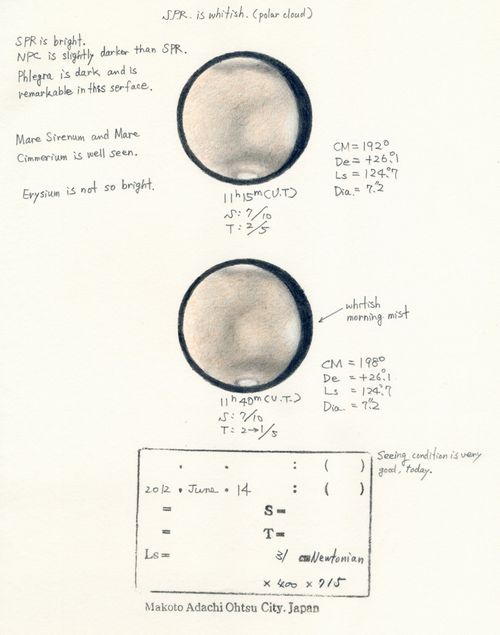 SPR. is whitish. (polar cloud)
SPR is bright.
NPC is slightly darker than SPR.
Phlegra is dark and is
remarkable in this serface.
Mare Sirenum and Mare
Cimmerium is well seen.
Erysium is not so bright.
11h15m(U.T.)
S: 7/10
T: 2/5
CM = 192°
De = +26.°1
Ls = 124.°7
Dia. = 7."2
whitish
morning mist
11h40m(U.T.)
S: 7/10
T: 2→1/5
CM = 198°
De = +26.°1
Ls = 124.°7
Dia. = 7."2
Seeing condition is very
good, today.
. . : ( )
2012 . June . 14 : ( )
= S=
= T=
Ls= 31 cm Newtonian
× 400 × 715
Makoto Adachi Ohtsu City. Japan